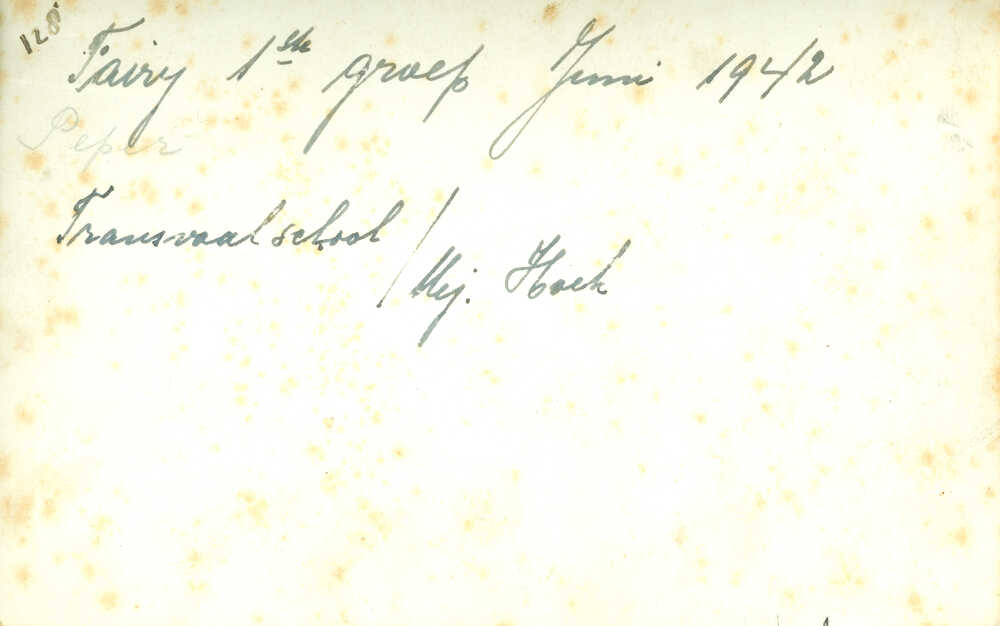 128
Fairy 1ste groep Juni 1942
Peper
Transvaalschool /
Mej. Hoek